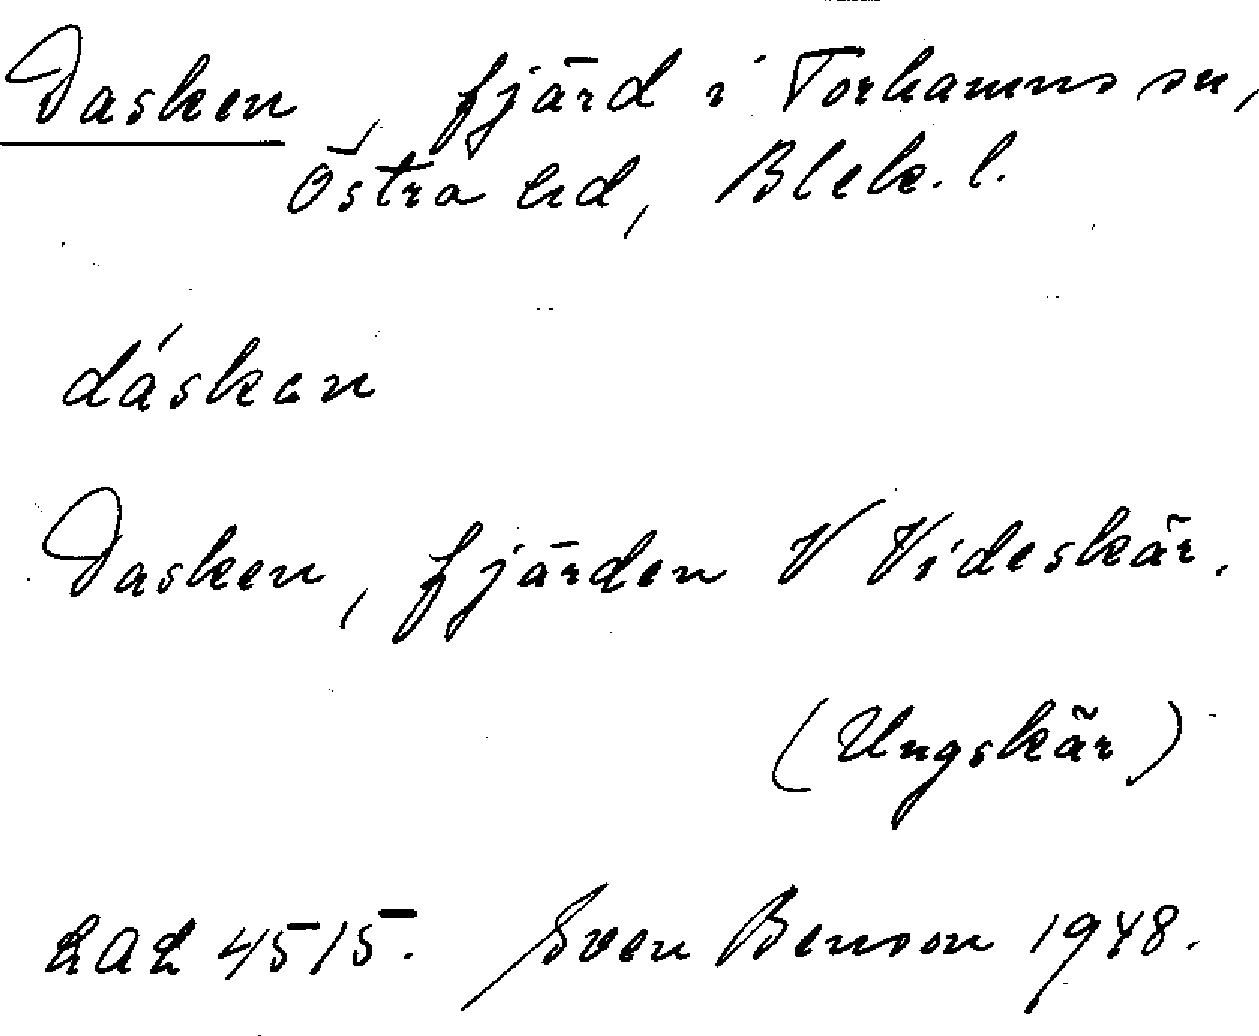 Dasken, fjärd i Torhamns sn,
Östra hd, Blek. l.
dáskan
Dasken, fjärden V Videskär.
(Ungskär)
LAL 4515. Sven Benson 1948.